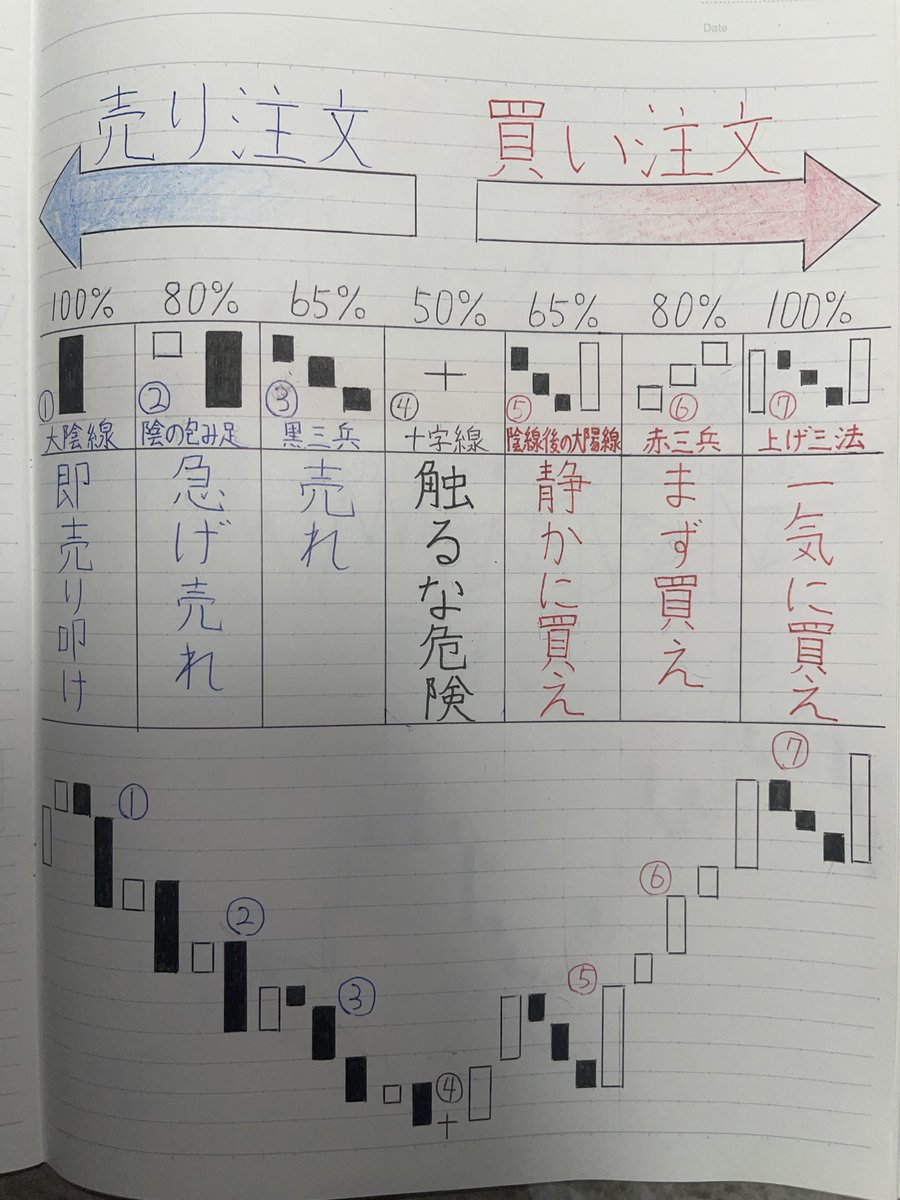 Date
売り注文 買い注文
100% 80% 65% 50% 65% 80% 100%
① ② ③ ④ ⑤ ⑥ ⑦
大陰線 陰の包み足 黒三兵 十字線 陰線後の大陽線 赤三兵 上げ三法
即売り叩け
急げ売れ
売れ
触るな危険
静かに買え
まず買え
一気に買え
①
②
③
④
⑤
⑥
⑦